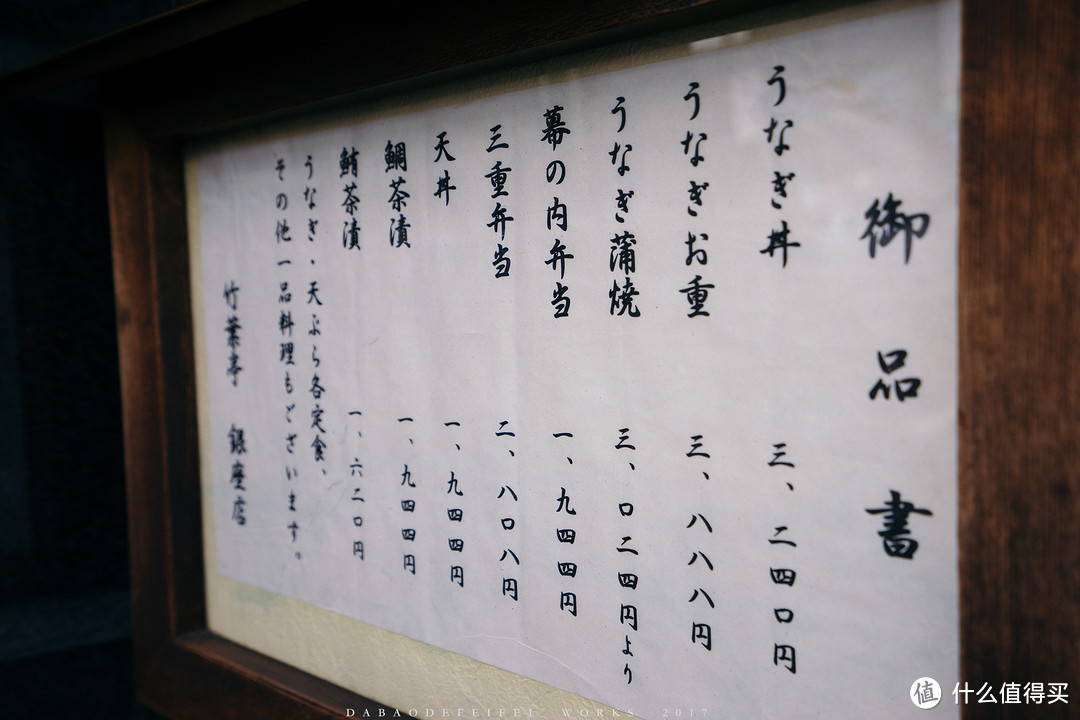 御品書
うなぎ丼 三、二四〇円
うなぎお重 三、八八八円
うなぎ蒲焼 三、〇二四円より
幕の内弁当 一、九四四円
三重弁当 二、八〇八円
天丼 一、九四四円
鯛茶漬 一、九四四円
鮪茶漬 一、六二〇円
うなぎ・天ぷら各定食、
その他一品料理もございます。
竹葉亭 銀座店
值 什么值得买
DABAODEFEIFEI WORKS 2017